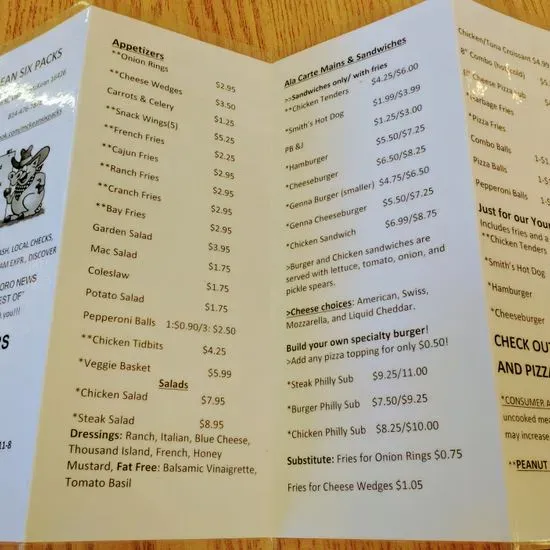 EAN SIX PACKS
16426
ASH, LOCAL CHECKS,
AM EXPR., DISCOVER
ORO NEWS
EST OF"
u!!!
PS
11-8
Appetizers
**Onion Rings $2.95
**Cheese Wedges $3.50
Carrots & Celery $1.25
**Snack Wings(5) $5.25
**French Fries $2.95
**Cajun Fries $2.95
**Ranch Fries $2.95
**Cranch Fries $2.95
**Bay Fries $2.95
Garden Salad $3.95
Mac Salad $1.75
Coleslaw $1.75
Potato Salad $1.75
Pepperoni Balls 1:$0.90/3: $2.50
**Chicken Tidbits $4.25
*Veggie Basket $5.99
Salads
*Chicken Salad $7.95
*Steak Salad $8.95
Dressings: Ranch, Italian, Blue Cheese,
Thousand Island, French, Honey
Mustard, Fat Free: Balsamic Vinaigrette,
Tomato Basil
Ala Carte Mains & Sandwiches
>>Sandwiches only/ with fries
**Chicken Tenders $4.25/$6.00
*Smith's Hot Dog $1.99/$3.99
PB &J $1.25/$3.00
*Hamburger $5.50/$7.25
*Cheeseburger $6.50/$8.25
*Genna Burger (smaller) $4.75/$6.50
*Genna Cheeseburger $5.50/$7.25
*Chicken Sandwich $6.99/$8.75
>Burger and Chicken sandwiches are
served with lettuce, tomato, onion, and
pickle spears.
>Cheese choices: American, Swiss,
Mozzarella, and Liquid Cheddar.
Build your own specialty burger!
>Add any pizza topping for only $0.50!
*Steak Philly Sub $9.25/11.00
*Burger Philly Sub $7.50/$9.25
*Chicken Philly Sub $8.25/$10.00
Substitute: Fries for Onion Rings $0.75
Fries for Cheese Wedges $1.05
Chicken/Tuna Croissant $4.99
8" Combo (hot/cold) $5
8" Cheese Pizza Sub
*Garbage Fries
*Pizza Fries
Combo Balls 1-$
Pizza Balls 1-$
Pepperoni Balls 1-$
Just for our You
Includes fries and a
**Chicken Tenders
*Smith's Hot Dog
*Hamburger
*Cheeseburger
CHECK OUT
AND PIZZA
*CONSUMER A
uncooked mea
may increase
**PEANUT